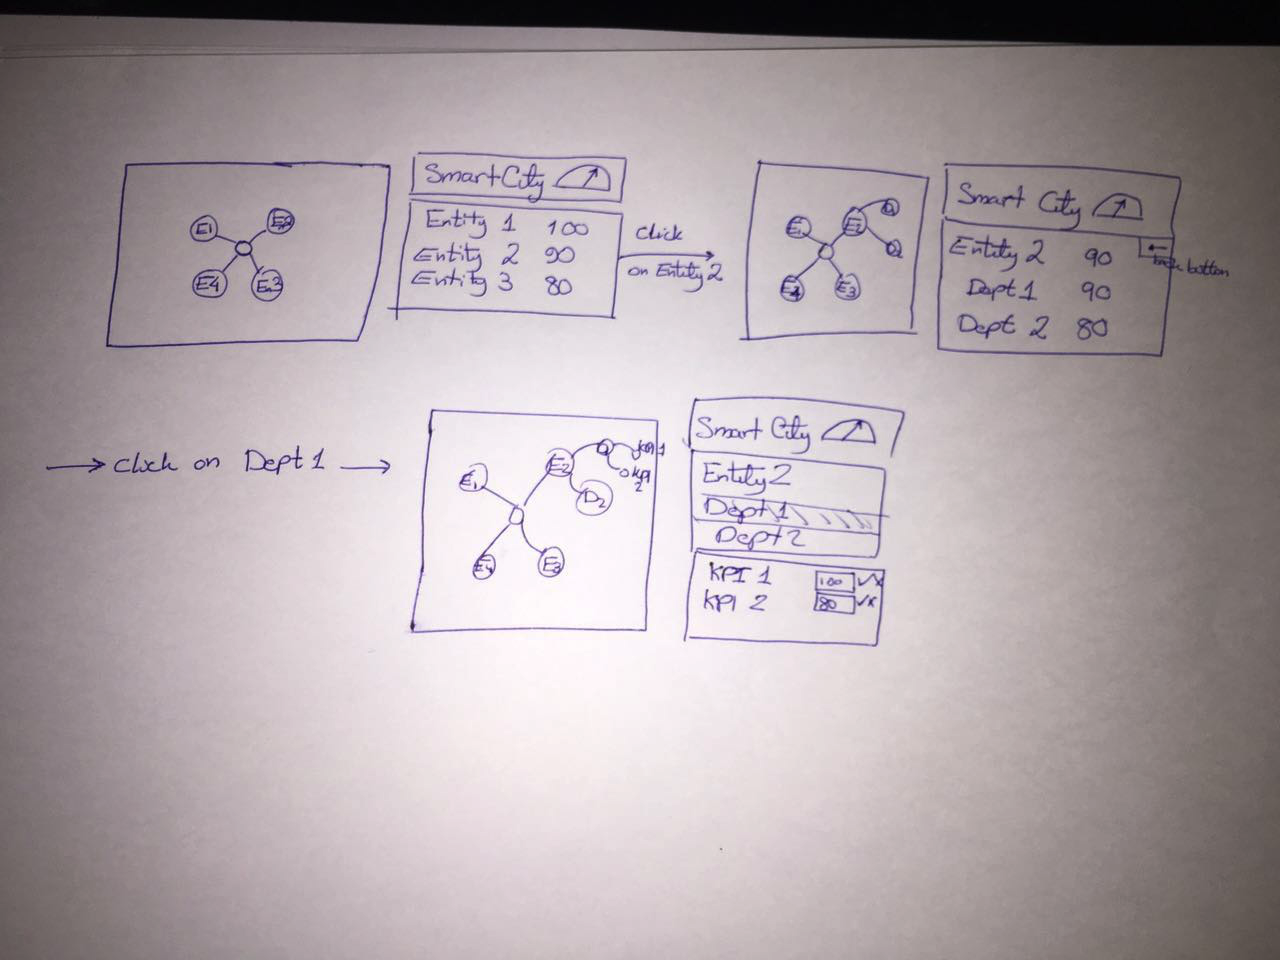 E1
E2
E4
En3
Smart City
Entity 1 100
Entity 2 90
Entity 3 80
click
on Entity 2
E1
E2
E4
E3
Smart City
Entity 2 90
back button
Dept 1 90
Dept 2 80
click on Dept 1
E1
E2
KPI 1
KPI 2
D2
E4
E3
Smart City
Entity 2
Dept 1
Dept 2
KPI 1 100 ✓x
KPI 2 80 ✓x